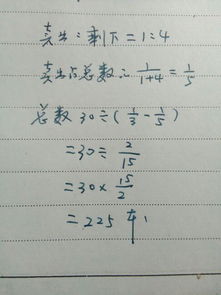 卖出:剩下=1:4
卖出占总数:1/(1+4)=1/5
总数 30÷(1/3-1/5)
=30÷2/15
=30×15/2
=225 本